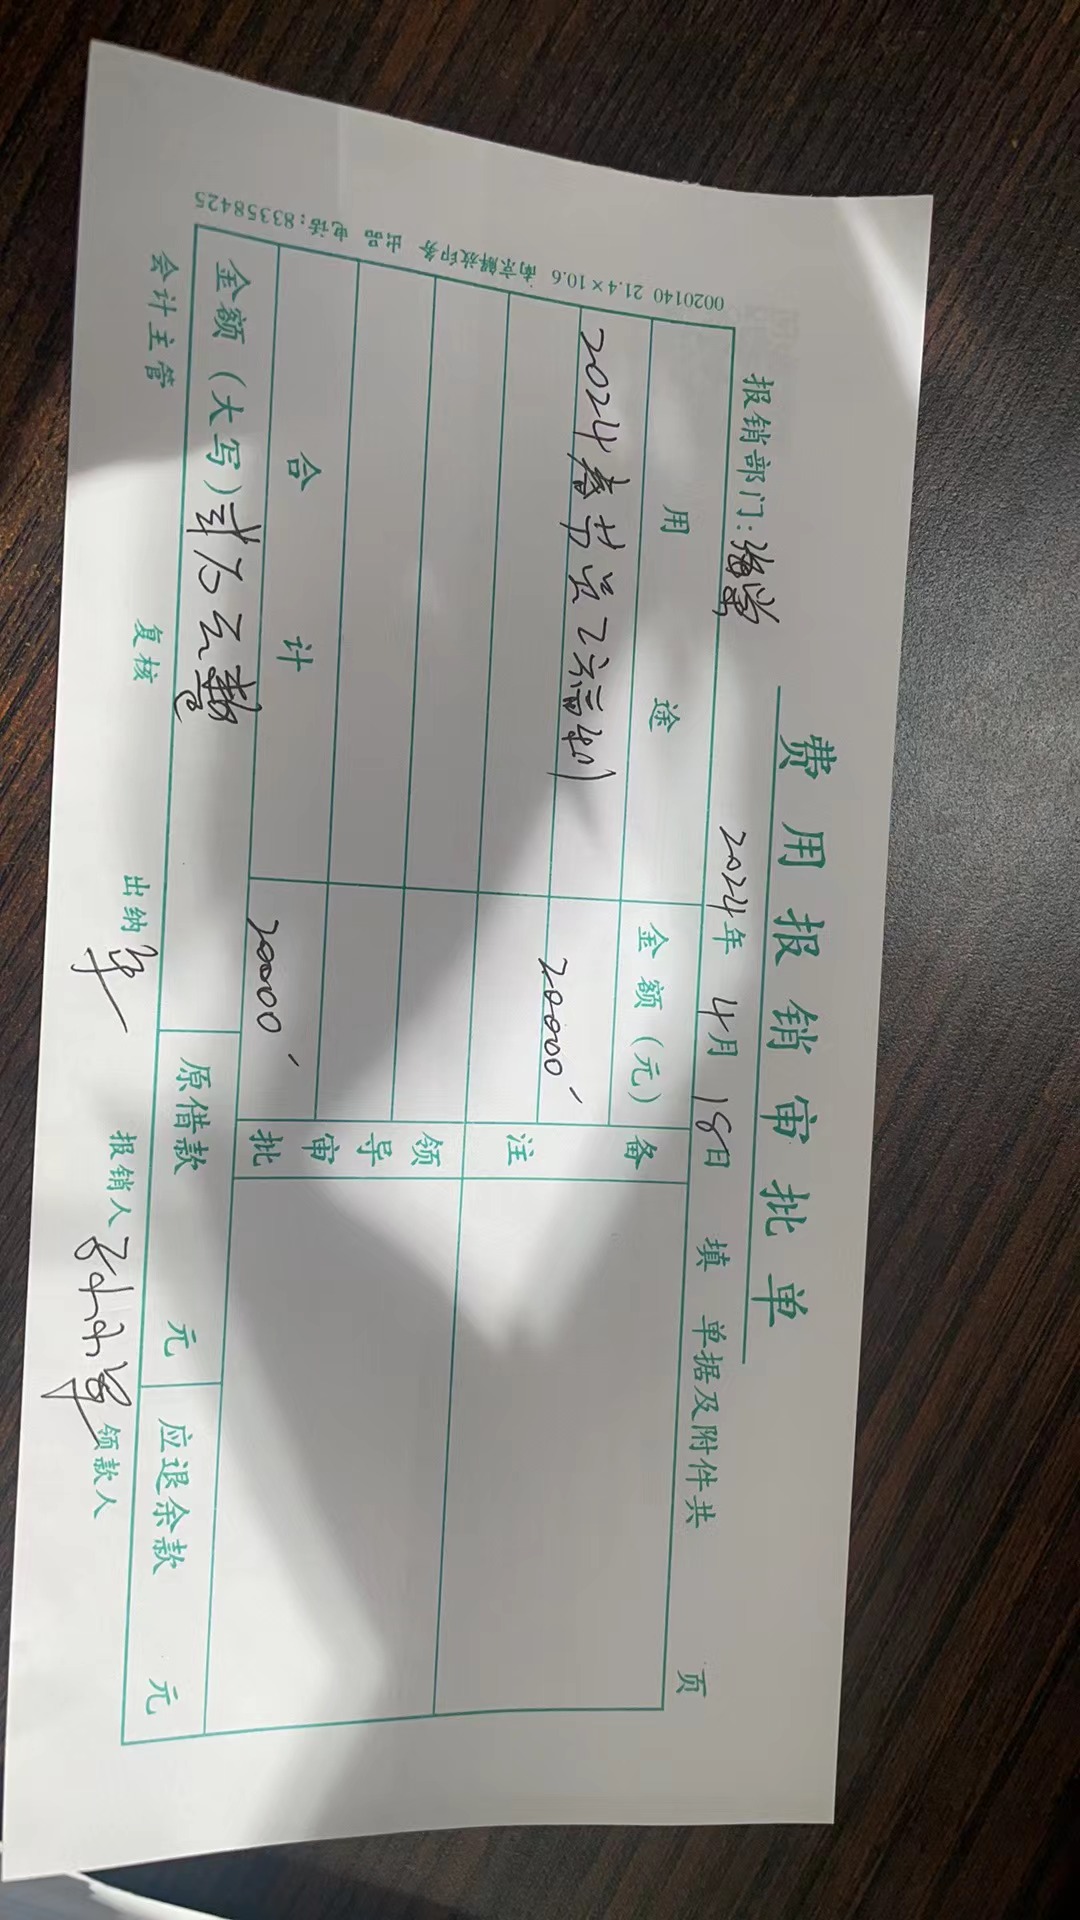 费用报销审批单
报销部门: 2024年 4月 18日 填 单据及附件共 页
用途 金额(元) 备注
2024春节员工福利 20000
合计 20000 领导审批
金额(大写)贰万元整 原借款 元 应退余款 元
会计主管 复核 出纳 报销人 领款人
0020140 21.4×10.6 南京解放印务 出品 电话:83358425